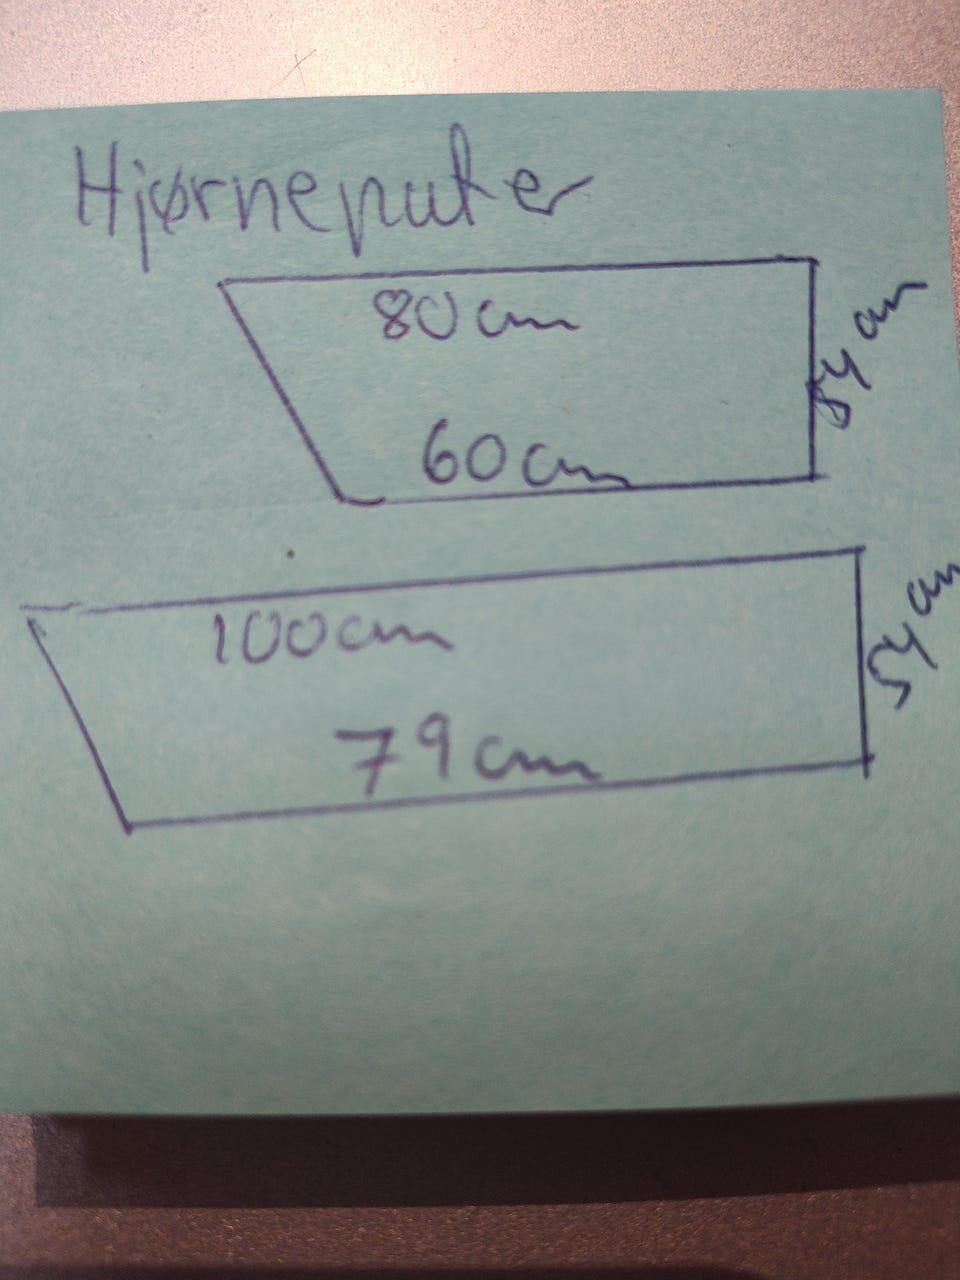 Hjørneputer
80 cm
54 cm
60 cm
100 cm
54 cm
79 cm